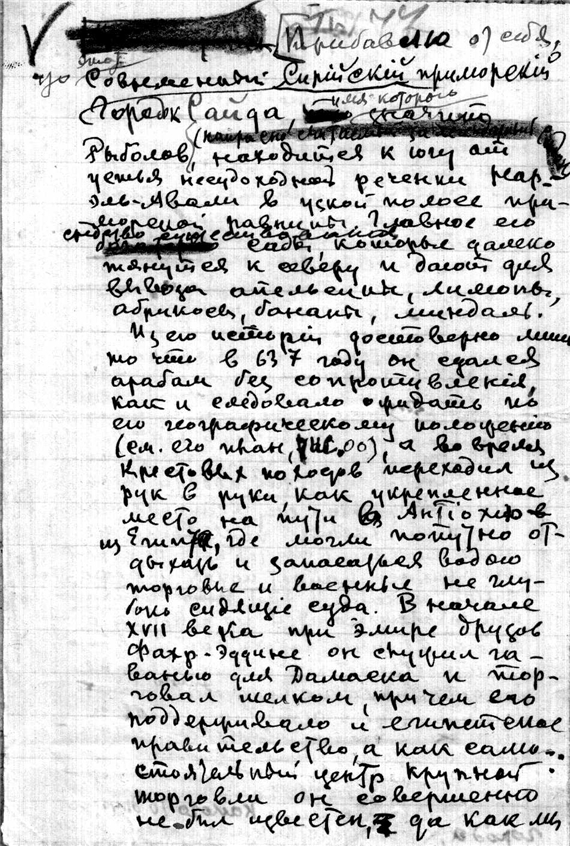 Прибавлю от себя,
что этот
Современный Сирійскій приморскій
городок Сайда, имя которого значит
Рыболов, находится к югу от
устья несудоходной реченки Нар-
эль-Авали в узкой полосе при-
морской равнины. Главное его
сады, которые далеко
тянутся к северу и дают для
вывоза апельсины, лимоны,
абрикосы, бананы, миндаль.
Из его исторіи достоверно лишь
то что в 637 году он сдался
арабам без сопротивленія,
как и следовало ожидать по
его географическому положенію
(см. его план, 00), а во время
Крестовых походов переходил из
рук в руки как укрепленное
место на пути в Антіохію
из Египта, где могли попутно от-
дыхать и запасаться водою
торговые и военные не глу-
боко сидящіе суда. В начале
XVII века при Эмире друзов
Фахр-Эддине он служил га-
ванью для Дамаска и тор-
говал шелком, причем его
поддерживало и египетское
правительство, а как само-
стоятельный центр крупной
торговли он совершенно
не был известен, да как мы